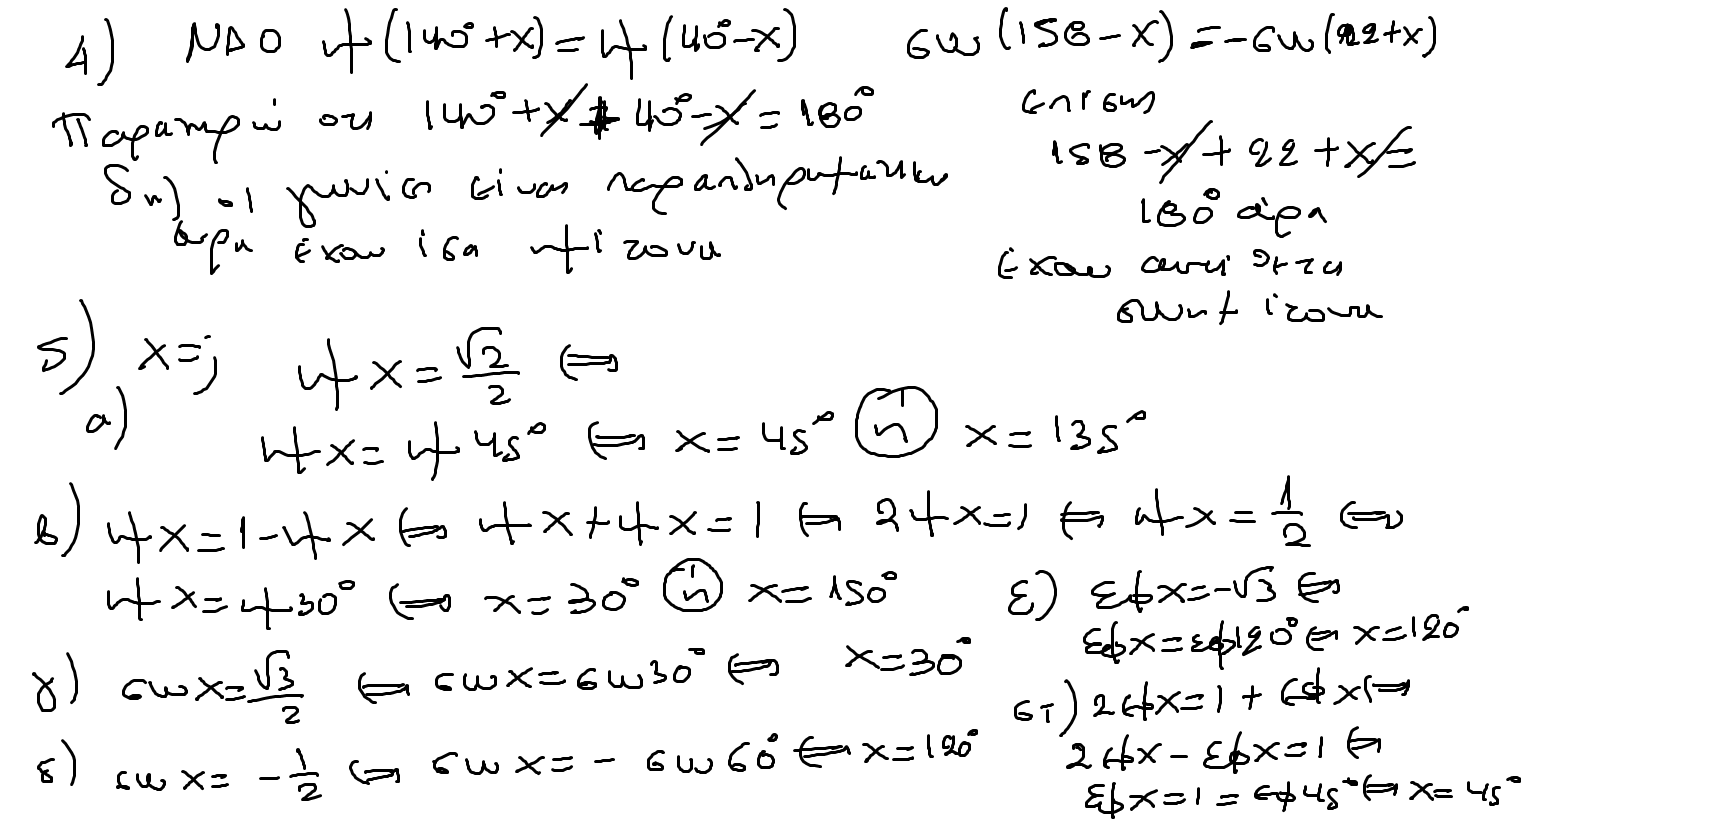 4) ΝΔΟ ημ(140°+x)=ημ(40°-x)
Παρατηρώ οτι 140°+x+40°-x=180°
δηλ οι γωνίες είναι παραπληρωματικές
άρα έχουν ίσα ημίτονα
συν(158-x)=-συν(22+x)
επίσης
158-x+22+x=
180° άρα
έχουν αντίθετα
συνημίτονα
5) x=; 
α) ημx=√2/2 ⇔
ημx=ημ45° ⇔ x=45° ή x=135°
β) ημx=1-ημx ⇔ ημx+ημx=1 ⇔ 2ημx=1 ⇔ ημx=1/2 ⇔
ημx=ημ30° ⇔ x=30° ή x=150°
γ) συνx=√3/2 ⇔ συνx=συν30° ⇔ x=30°
δ) συνx=-1/2 ⇔ συνx=-συν60° ⇔ x=120°
ε) εφx=-√3 ⇔
εφx=εφ120° ⇔ x=120°
στ) 2εφx=1+εφx ⇔
2εφx-εφx=1 ⇔
εφx=1=εφ45° ⇔ x=45°